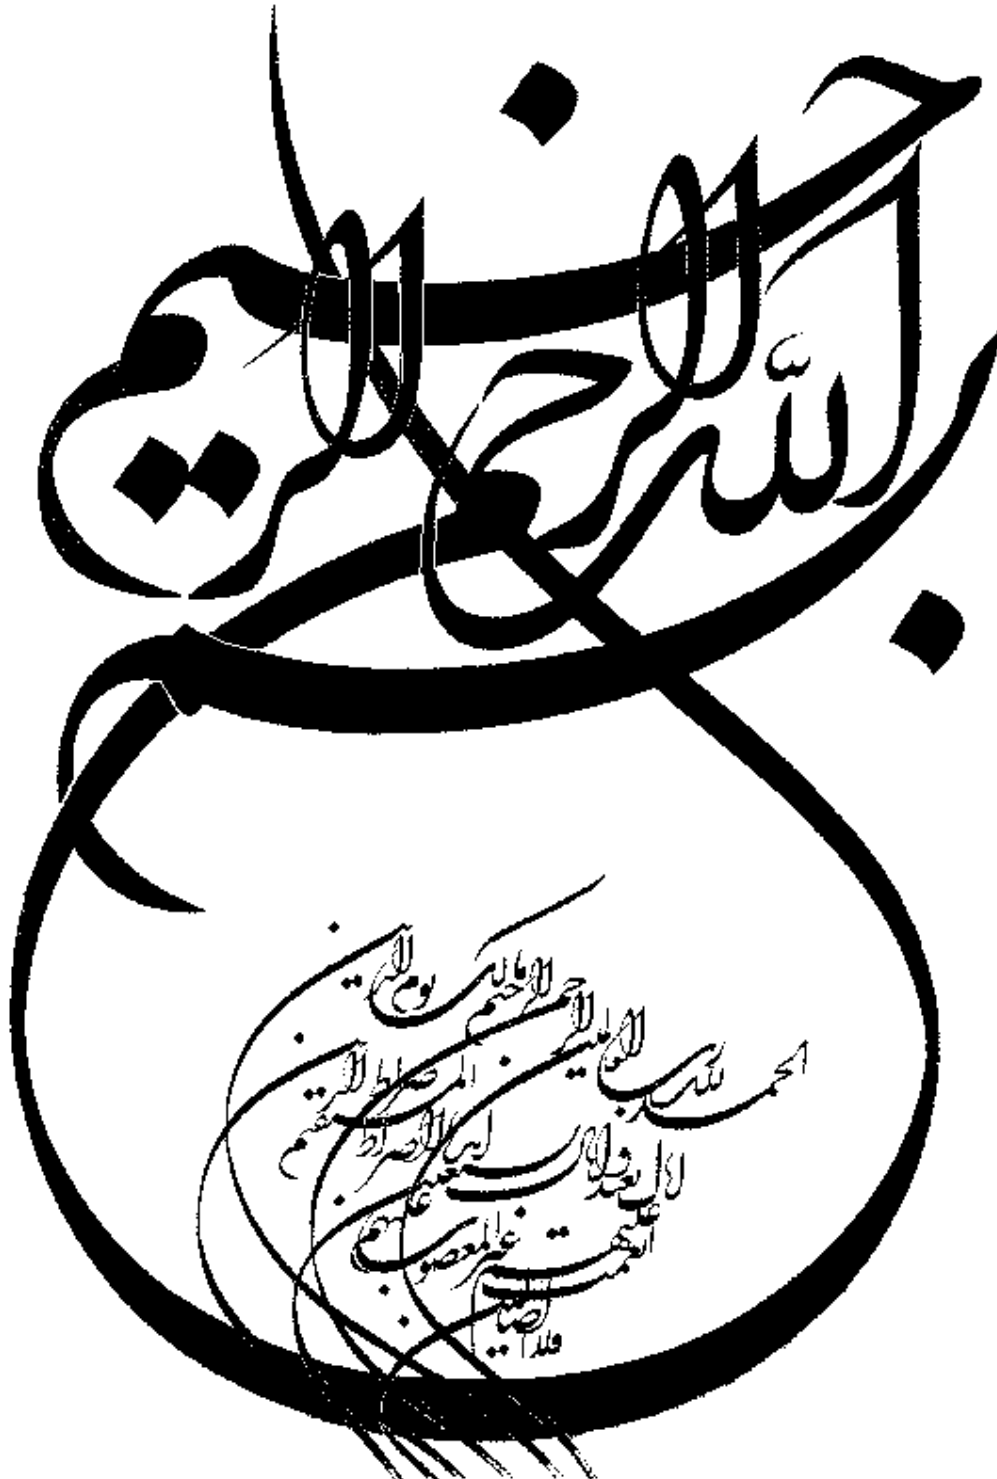 بسم الله الرحمن الرحیم
الحمد لله رب العالمین
الرحمن الرحیم مالک یوم الدین
ایاک نعبد وایاک نستعین
اهدنا الصراط المستقیم
صراط الذین
انعمت علیهم
غیر المغضوب علیهم
ولا الضالین